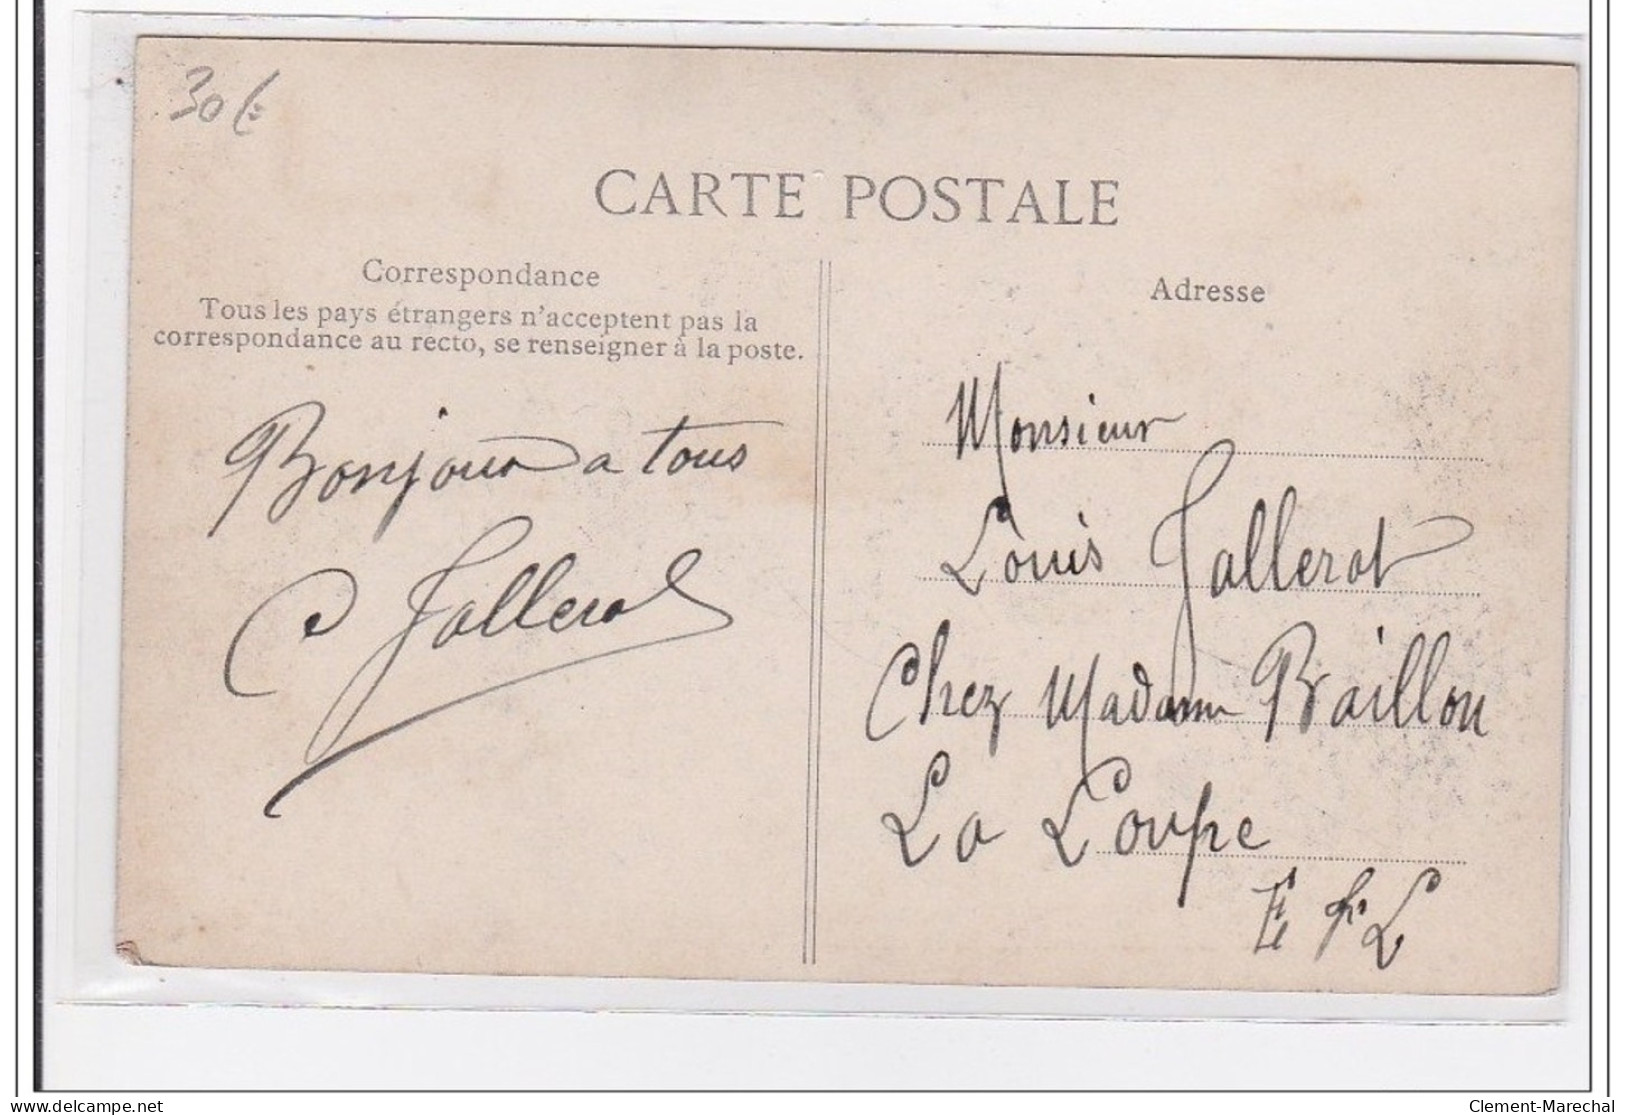 30 €
CARTE POSTALE
Correspondance
Tous les pays étrangers n'acceptent pas la
correspondance au recto, se renseigner à la poste.
Bonjour a tous
C Jallerat
Adresse
Monsieur
Louis Jallerat
Chez Madame Baillon
La Loupe
E & L
delcampe.net
Clement-Marechal